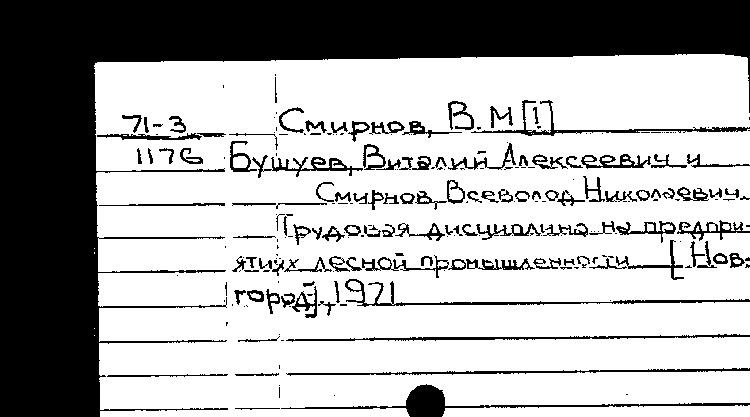 71-3 Смирнов, В. М [!]
1176 Бушуев, Виталий Алексеевич и
Смирнов, Всеволод Николаевич.
Трудовая дисциплина на предпри-
ятиях лесной промышленности [Нов-
город], 1971